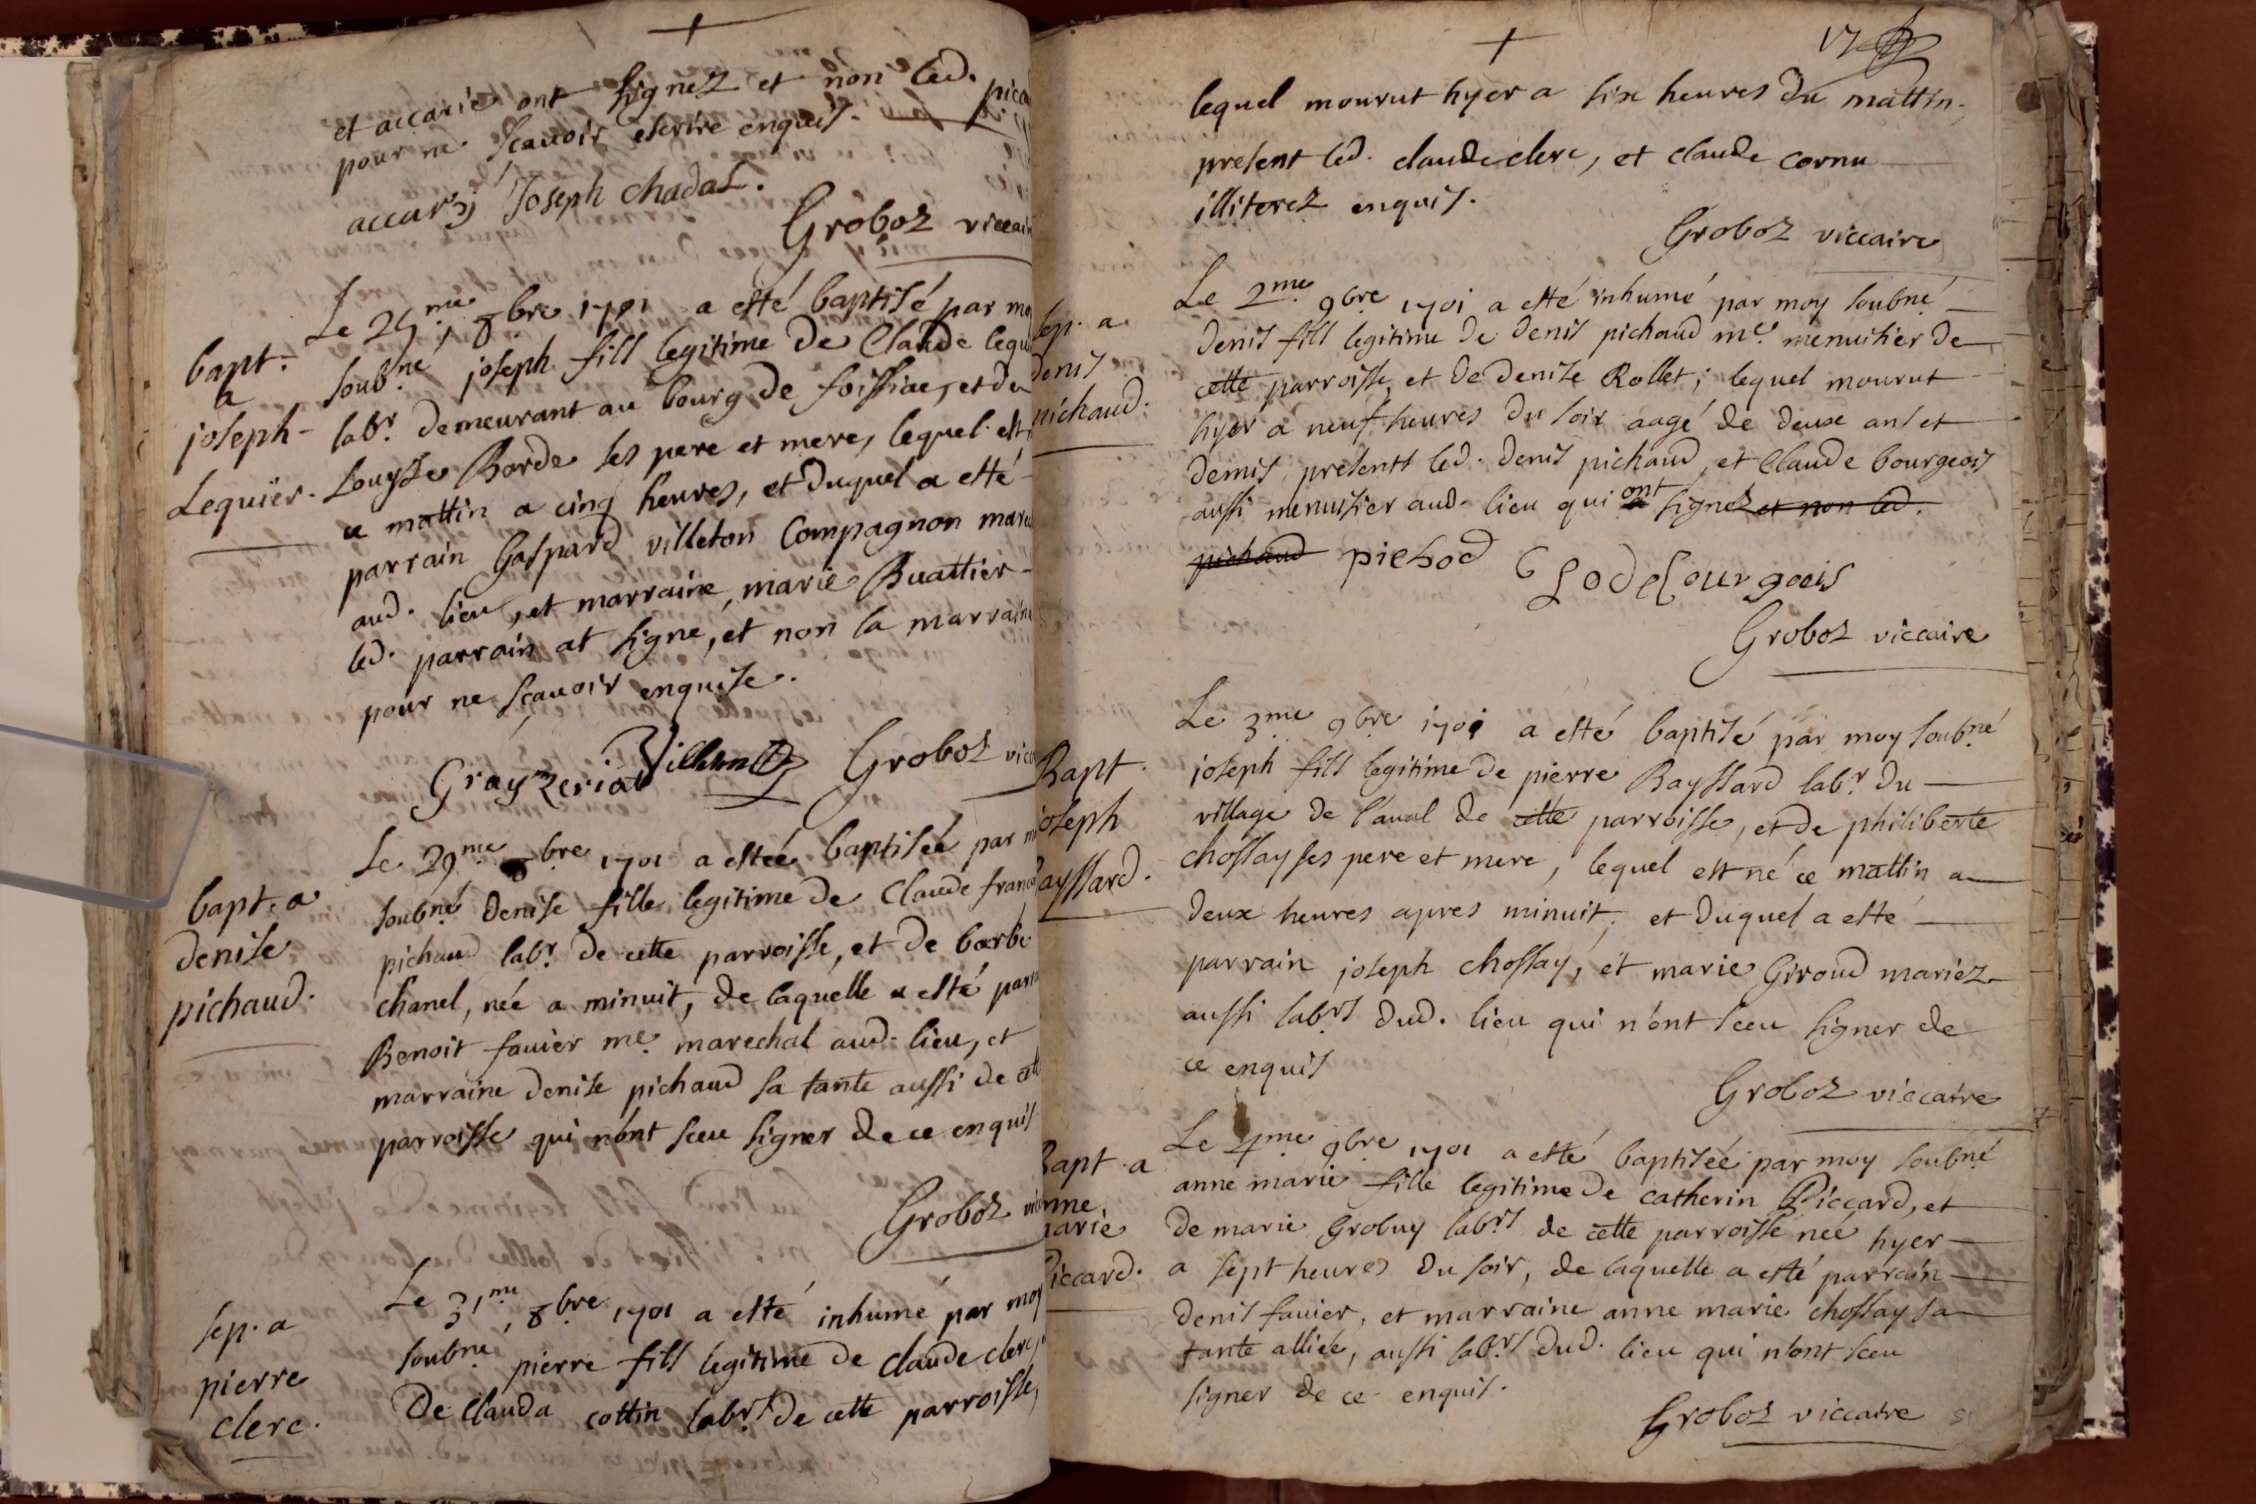 et accarie ont signez et non led.
pour ne scavoir escrire enquis.
accary Joseph chadal.
Groboz viccai
bapt. a joseph Lequier.
Le 25me 8bre 1701 a esté baptisé par mo
soubné joseph fils legitime de Claude lequ
labr. demeurant au bourg de foissiac, et de
Louysse Borde ses pere et mere, lequel est
ce mattin a cinq heures, et duquel a esté
parrain Gaspard villeton Compagnon mare
aud. lieu, et marraine, marie Buattier
led. parrain at signe, et non la marraine
pour ne scavoir enquise.
Groboz vic
bapt. a denise pichaud.
Le 29me 8bre 1701 a esteé baptiseé par m
soubné denise fille legitime de Claude franco
pichaud labr. de cette parroisse, et de barbe
chanel, née a minuit, de laquelle a esté parr
Benoit favier me. marechal aud. lieu, et
marraine denise pichaud sa tante aussi de cett
parroisse qui n'ont sceu signer de ce enquis
Groboz vic
sep. a pierre clerc.
Le 31me 8bre 1701 a esté inhumé par moy
soubné, pierre fils legitime de claude clerc,
De Clauda cottin labrs de cette parroisse,
17
lequel mourut hyer a six heures du mattin,
present led. claude clerc, et claude cornu
illiterez enquis.
Groboz viccaire
sep. a denis pichaud.
Le 2me 9bre 1701 a esté inhumé par moy soubné
denis fils legitime de denis pichaud me. menuisier de
cette parroisse, et de denise Rollet; lequel mourut
hyer a neuf heures du soir aagé de deux ans et
demis, presents led. denis pichaud, et Claude bourgeois
aussi menuisier aud. lieu qui ont signez et non led.
pichaud pichod Glodebourgois
Groboz viccaire
Bapt. joseph ayssard.
Le 3me 9bre 1701 a esté baptisé par moy soubné
joseph fils legitime de pierre Bayssard labr. du
village de l'aval de cette parroisse, et de philiberte
chossay ses pere et mere, lequel est né ce mattin a
deux heures apres minuit, et duquel a esté
parrain joseph chossay, et marie Giroud mariez
aussi labrs dud. lieu qui n'ont sceu signer de
ce enquis
Groboz viccaire
Bapt. a nne marie iccard.
Le 4me 9bre 1701 a esté baptiseé par moy soubné
anne marie fille legitime de catherin Piccard, et
de marie Grobuy labrs de cette parroisse neé hyer
a sept heures du soir, de laquelle a esté parrain
denis favier, et marraine anne marie chossay sa
tante alliée, aussi labrs dud. lieu qui n'ont sceu
signer de ce enquis.
Groboz viccaire